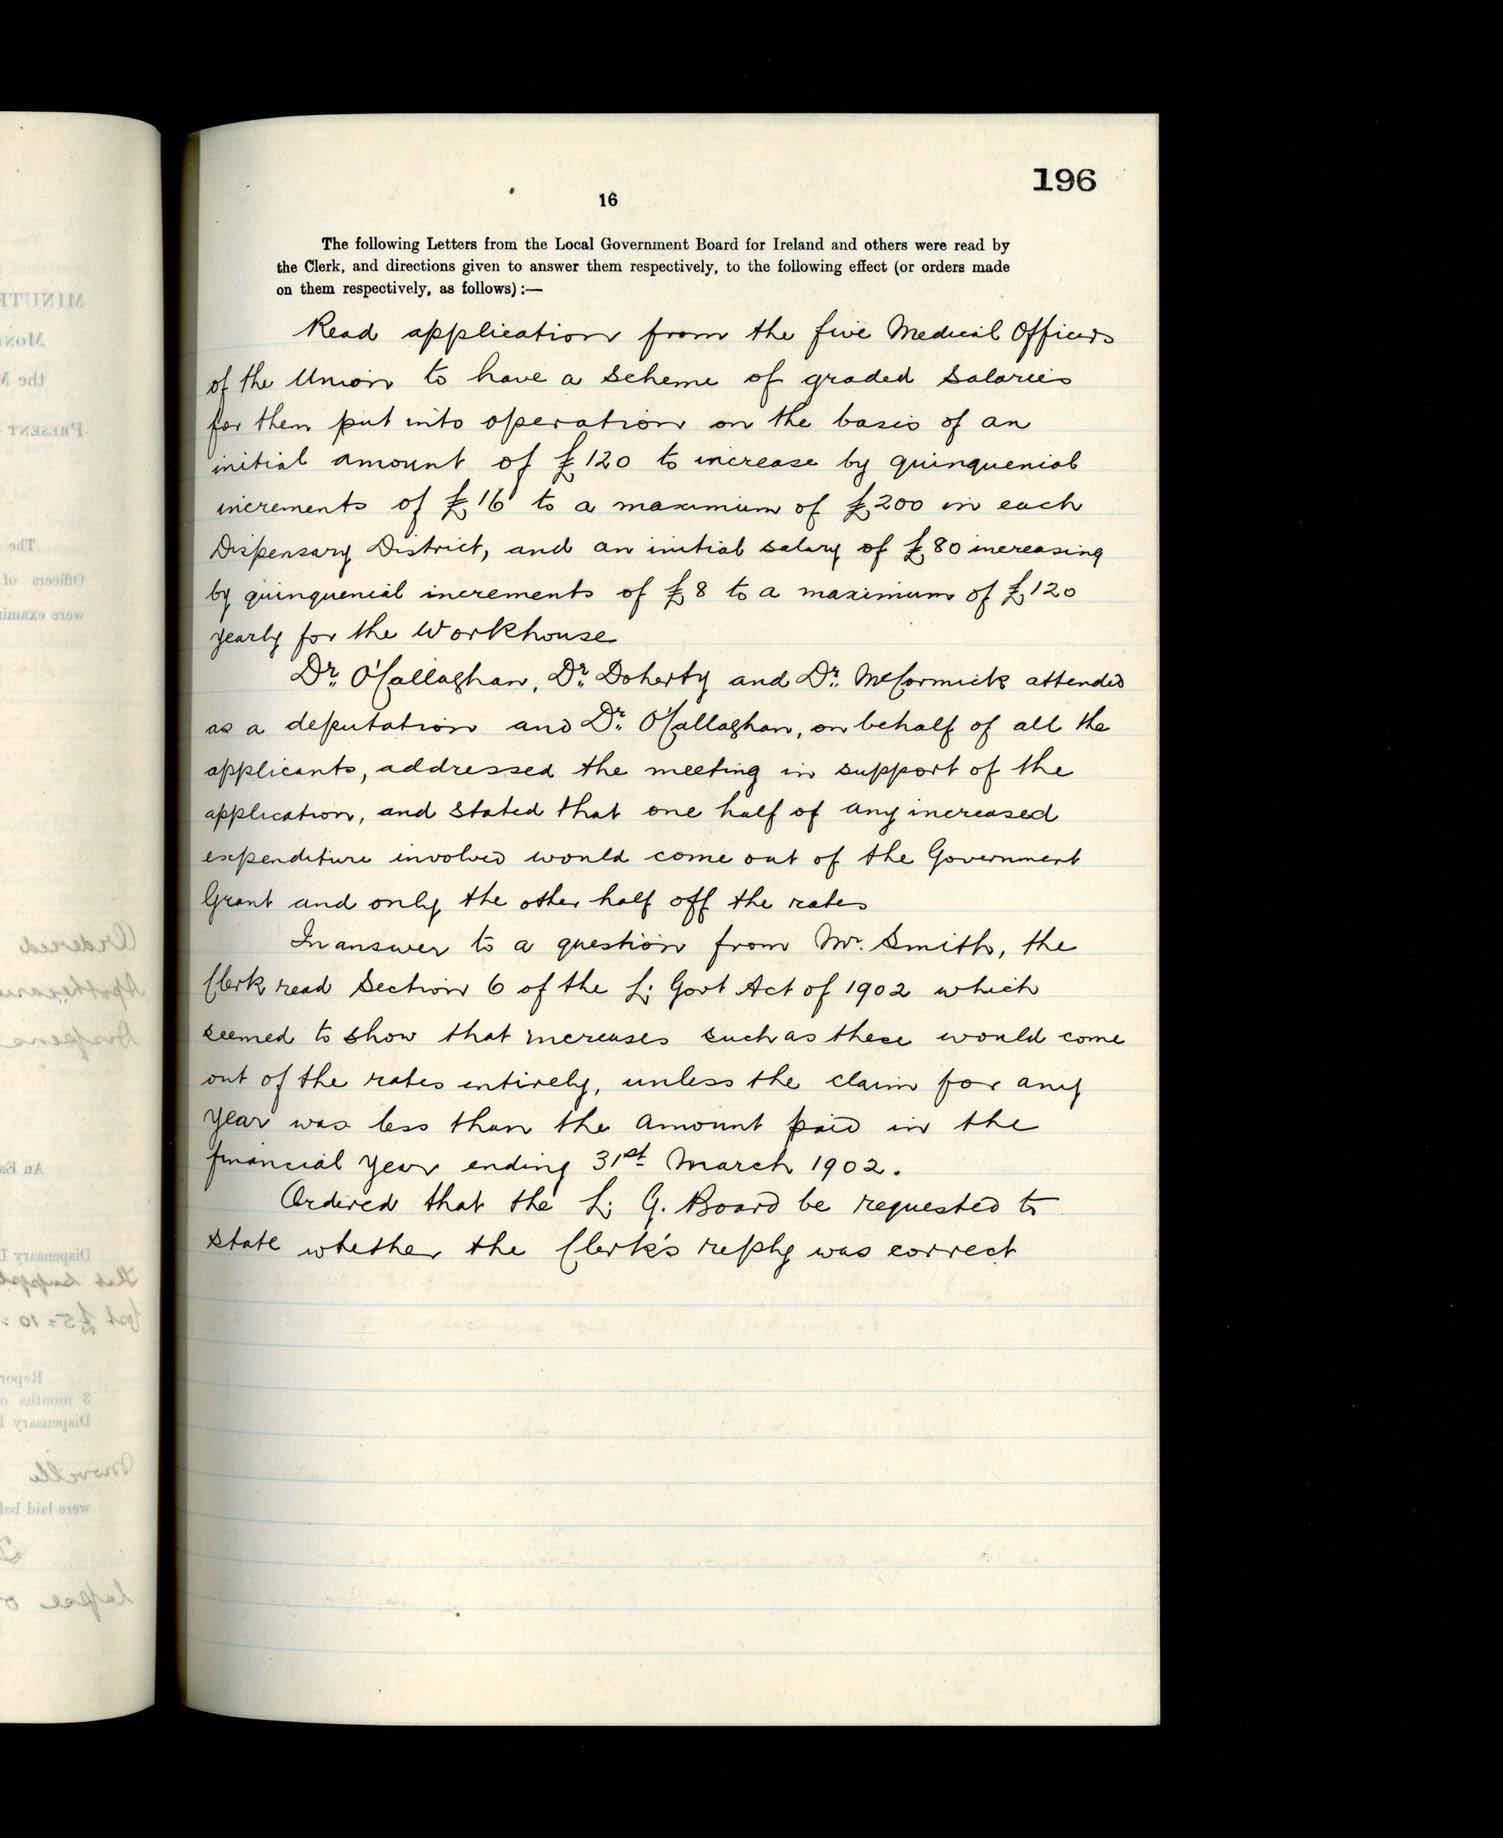 196
16
The following Letters from the Local Government Board for Ireland and others were read by
the Clerk, and directions given to answer them respectively, to the following effect (or orders made
on them respectively, as follows) :—
Read application from the five Medical Officers
of the Union to have a scheme of graded Salaries
for them put into operation on the basis of an
initial amount of £120 to increase by quinquenial
increments of £16 to a maximum of £200 in each
Dispensary District, and an initial salary of £80 increasing
by quinquenial increments of £8 to a maximum of £120
yearly for the Workhouse
Dr. O'Callaghan, Dr. Doherty and Dr. McCormick attended
as a deputation and Dr. O'Callaghan, on behalf of all the
applicants, addressed the meeting in support of the
application, and stated that one half of any increased
expenditure involved would come out of the Government
Grant and only the other half off the rates
In answer to a question from Mr. Smith, the
Clerk read Section 6 of the L: Govt Act of 1902 which
seemed to show that increases such as these would come
out of the rates entirely, unless the claim for any
year was less than the amount paid in the
financial year ending 31st March 1902.
Ordered that the L: G. Board be requested to
state whether the Clerk's reply was correct
MINUTE
MON
the M
PRESENT
The
Officers of
were examin
Ordered
An Ea
Dispensary D
Repor
3 months o
Dispensary D
Moville
were laid bef